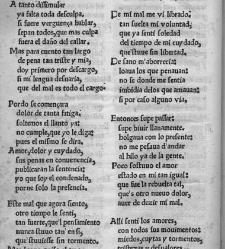 A tanto dissimular
ya falta toda desculpa,
si fuere verguença hablar,
sepan todos, que mas culpa
fuera el daño del callar.
Mas para cuento tan largo
de pena tan triste y mia,
doy primero por descargo,
si mi lengua desuaria,
que del mal es todo el cargo.
Por do se començara
dolor de tanta fatiga,
soltemos el llanto ya
no cumple, que yo le diga
pues el mismo se dira.
Amor, dolor y cuydado,
sus penas en conuenencia,
publicaran la sentencia
yo que soy el condenado,
porne solo la presencia.
Este mal que agora siento,
otro tiempo le senti,
mas fuerte, que el pensamiento
nunca estuuo tan en si,
que estuuiesse sin tormento.
De mi mal me vi librado,
tan suelta mi voluntad,
que ya senti soledad
del tiempo de mi cuydado,
que estuue sin libertad.
De sano m'aborrecia
loaua los que penauan
no se donde me sentia
imbidia delos que amauan
si por caso alguno via,
Entonces supe passar
supe biuir llanamente,
holgaua con lo presente
no me pesaua d'andar
al hilo ya de la gente.
Poco sostuuo el amor
estado en mi tan igual
que fue la rebuelta tal,
que's otro nueuo dolor,
auer de dezir mi mal.
Alli senti los amores,
con todos sus mouimentos
miedos, cuytas y tormentos,